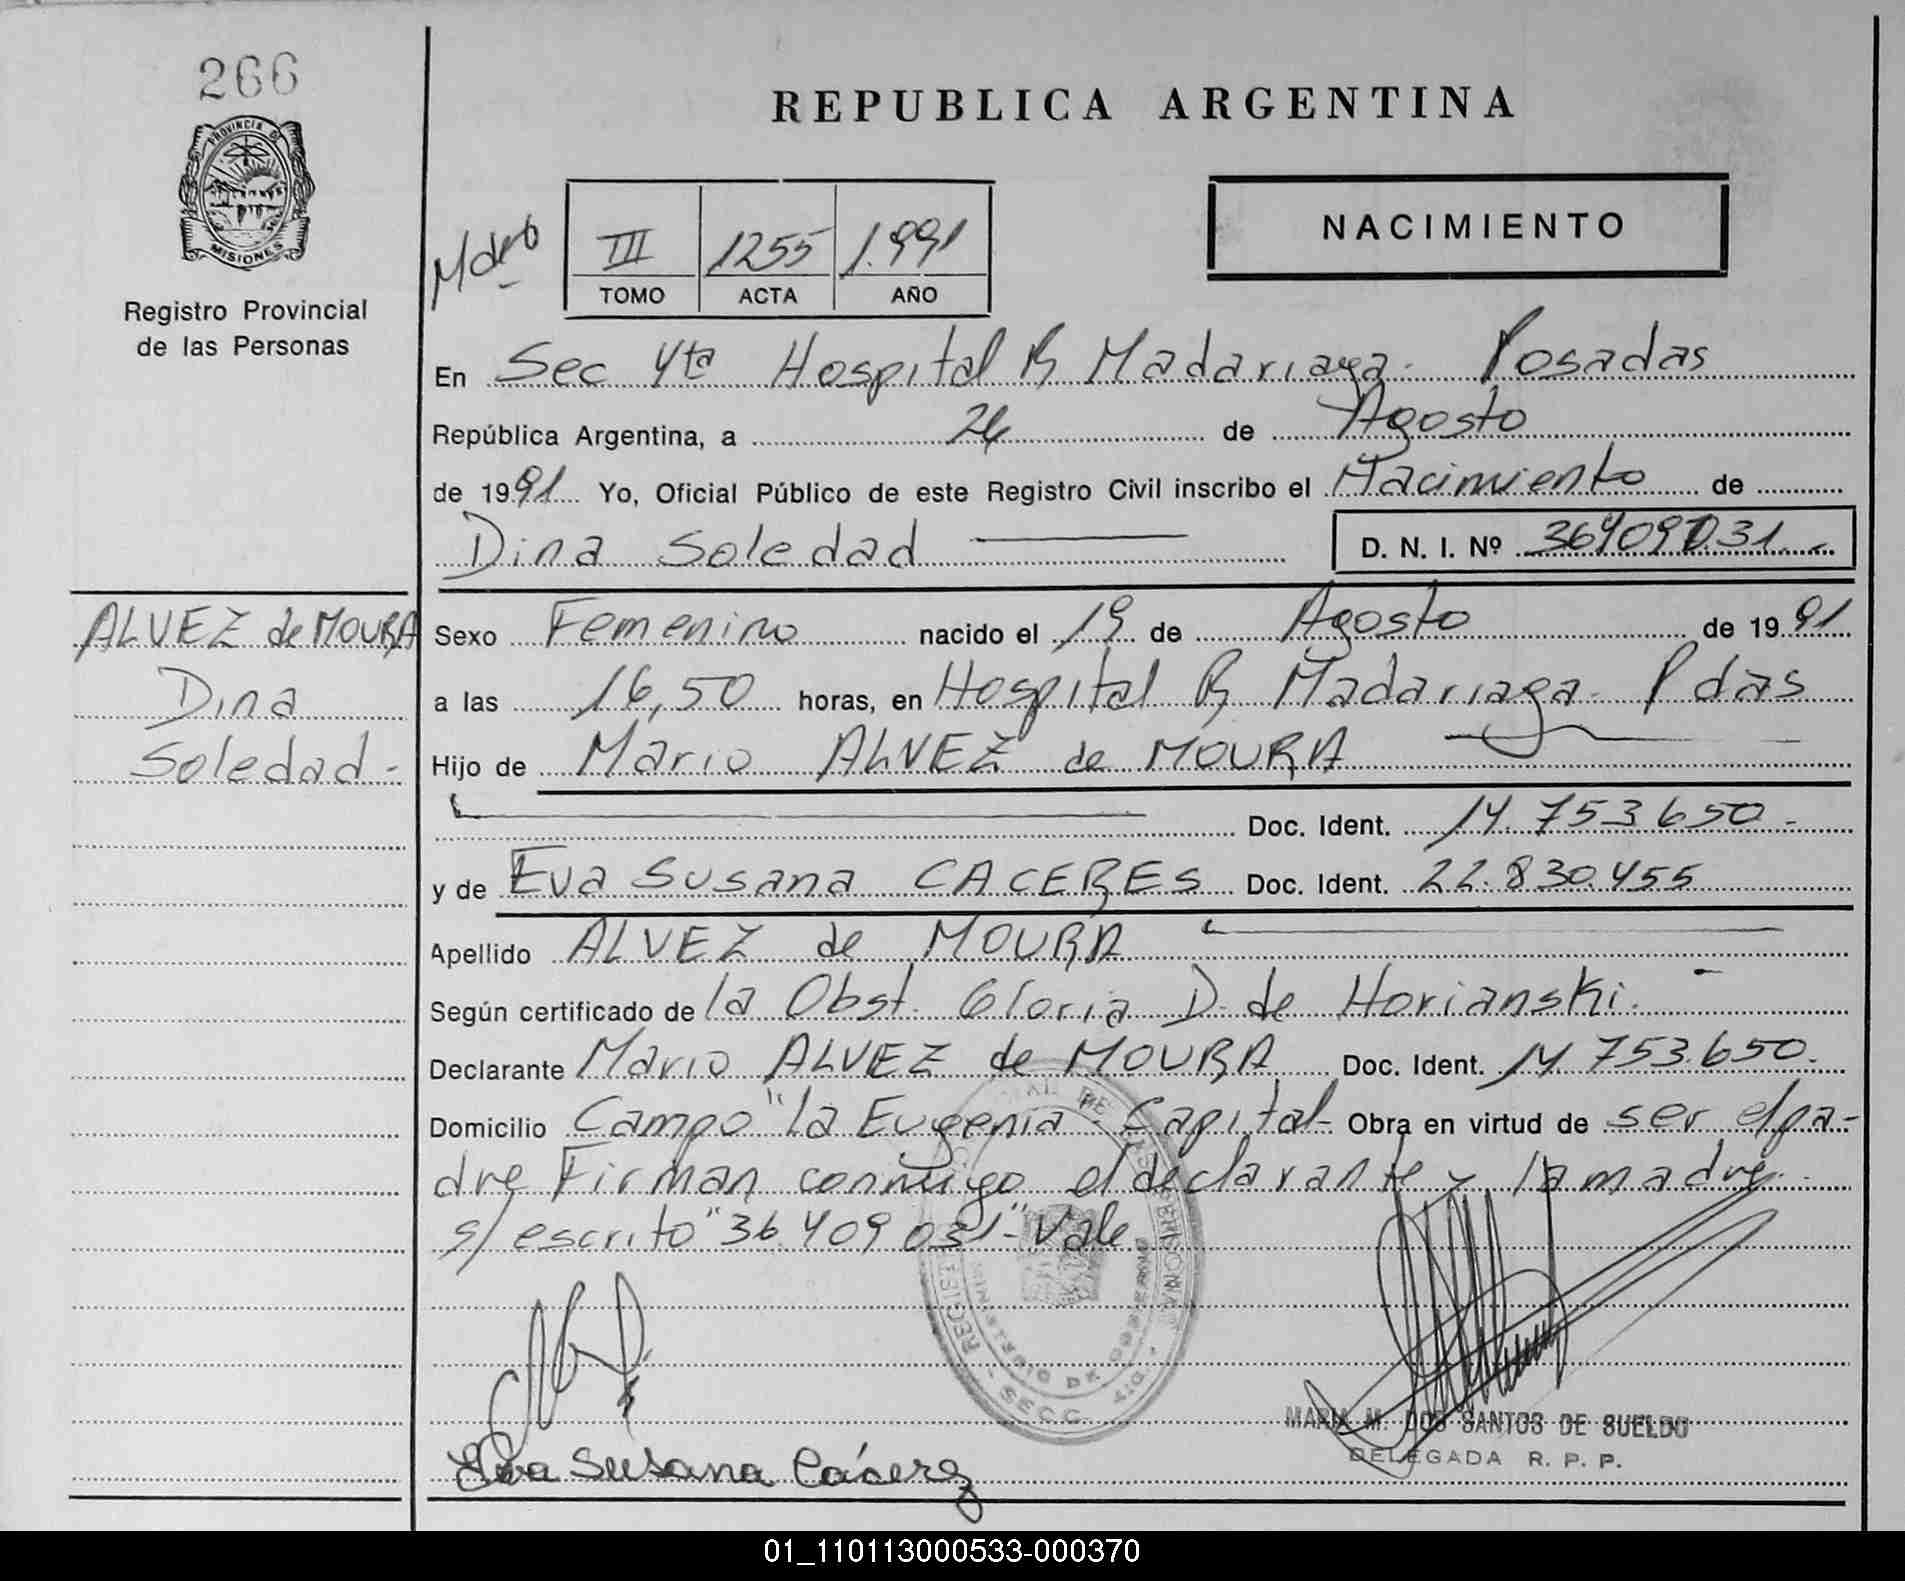 266
PROVINCIA DE
MISIONES
Registro Provincial
de las Personas
ALVEZ de MOURA
Dina
Soledad -
REPUBLICA ARGENTINA
NACIMIENTO
III 1255 1.991
TOMO ACTA AÑO
En Sec 4ta Hospital R Madariaga - Posadas
República Argentina, a 26 de Agosto
de 1991 Yo, Oficial Público de este Registro Civil inscribo el Nacimiento de
Dina Soledad D. N. I. Nº 36409031
Sexo Femenino nacido el 19 de Agosto de 1991
a las 16,50 horas, en Hospital R Madariaga - Pdas
Hijo de Mario ALVEZ de MOURA
Doc. Ident. 14.753.650 -
y de Eva Susana CACERES Doc. Ident. 22.830.455
Apellido ALVEZ de MOURA
Según certificado de la Obst. Gloria D. de Horianski.
Declarante Mario ALVEZ de MOURA Doc. Ident. 14.753.650.
Domicilio Campo "la Eugenia - Capital - Obra en virtud de ser el pa-
dre Firman conmigo el declarante y la madre.
s/ escrito "36.409.031" - Vale
Eva Susana Cácerez
MARIA M. DOS SANTOS DE SUELDO
DELEGADA R. P. P.
01_110113000533-000370